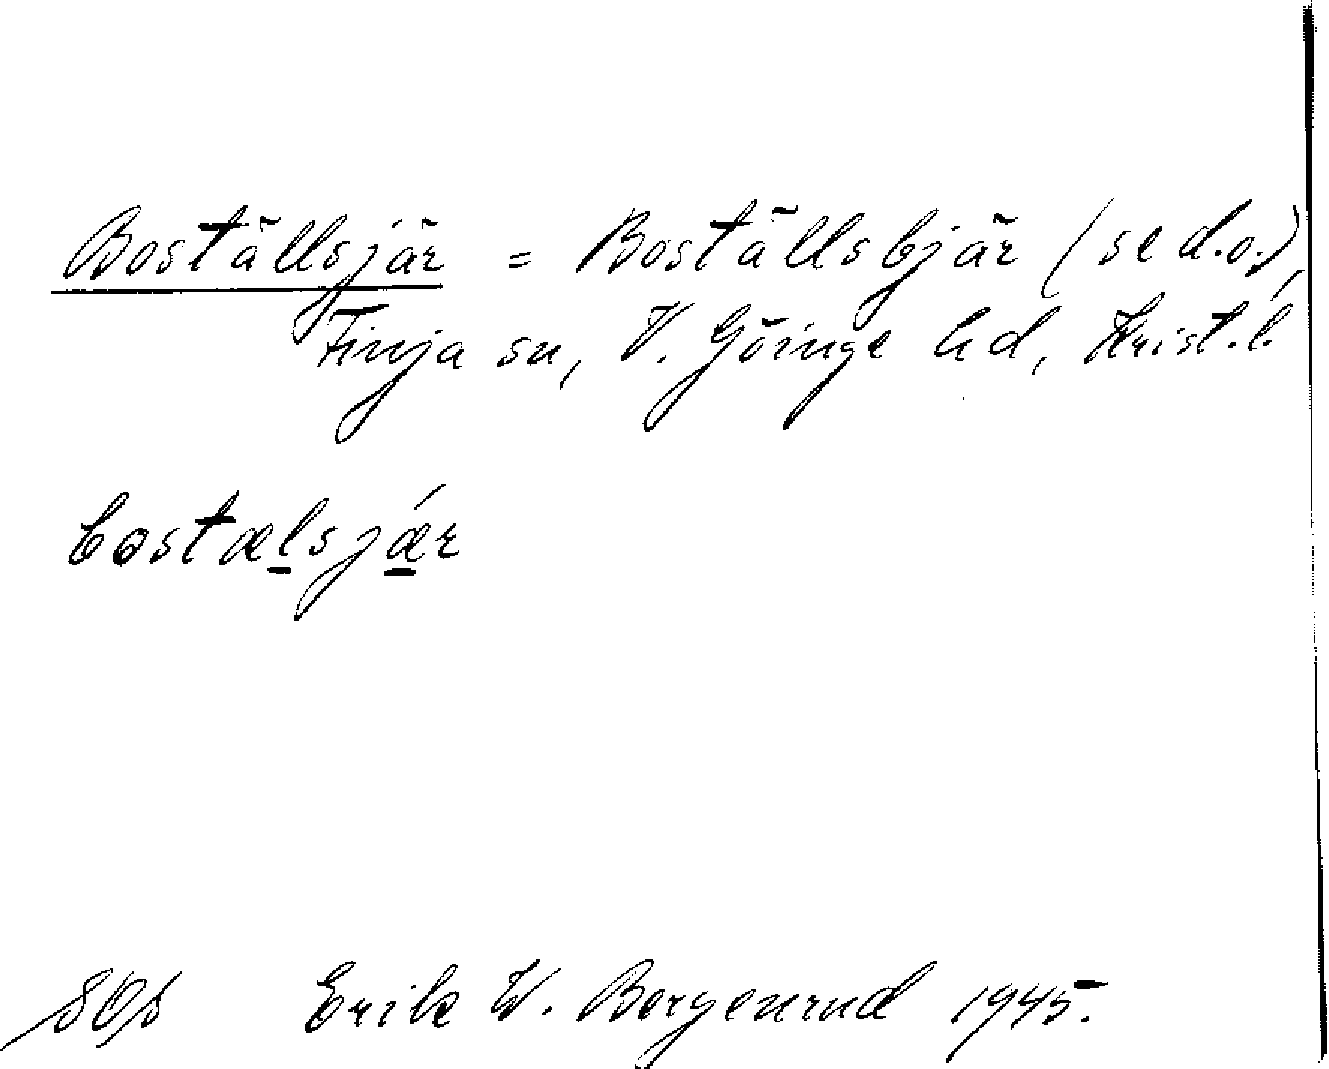 Boställsjär = Boställsbjär (se d.o.),
Finja sn, V. Göinge hd, Krist. l.
bostælsjǽr
Erik W. Bergenrud 1945.